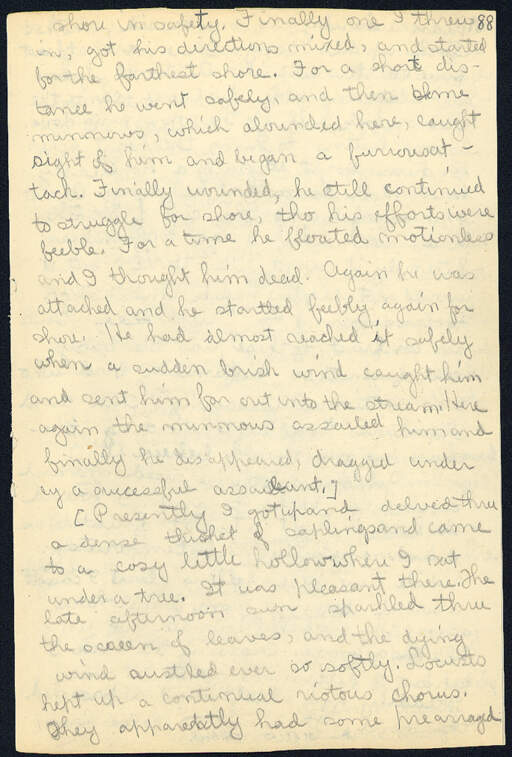 shore in safety. Finally one I threw 88
in, got his directions mixed, and started
for the farthest shore. For a short dis-
tance he went safely, and then some
minnows, which abounded here, caught
sight of him and began a furiousat-
tack. Finally wounded, he still continued
to struggle for shore, tho his efforts were
feeble. For a time he floated motionless
and I thought him dead. Again he was
attacked and he startled feebly again for
shore. He had almost reached it safely
when a sudden brish wind caught him
and sent him far out into the stream. Here
again the minnous assailed him and
finally he disappeared, dragged under
by a successful assailant.]
[Presently I got up and delved thru
a dense thicket of saplings and came
to a cosy little hollow where I sat
under a tree. It was pleasant there. The
late afternoon sun sparkled thru
the screen of leaves, and the dying
wind rustled ever so softly. Locusts
kept up a continual riotous chorus.
They apparently had some prearraged